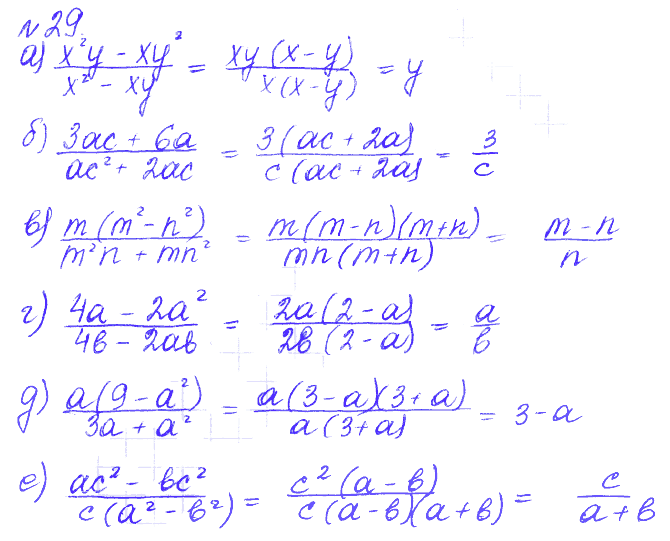 № 29.
а) (x²y - xy²)/(x² - xy) = xy(x - y)/x(x - y) = y
б) (3ac + 6a)/(ac² + 2ac) = 3(ac + 2a)/c(ac + 2a) = 3/c
в) m(m² - n²)/(m²n + mn²) = m(m - n)(m + n)/mn(m + n) = (m - n)/n
г) (4a - 2a²)/(4в - 2aв) = 2a(2 - a)/2в(2 - a) = a/в
д) a(9 - a²)/(3a + a²) = a(3 - a)(3 + a)/a(3 + a) = 3 - a
е) (ac² - вc²)/c(a² - в²) = c²(a - в)/c(a - в)(a + в) = c/(a + в)